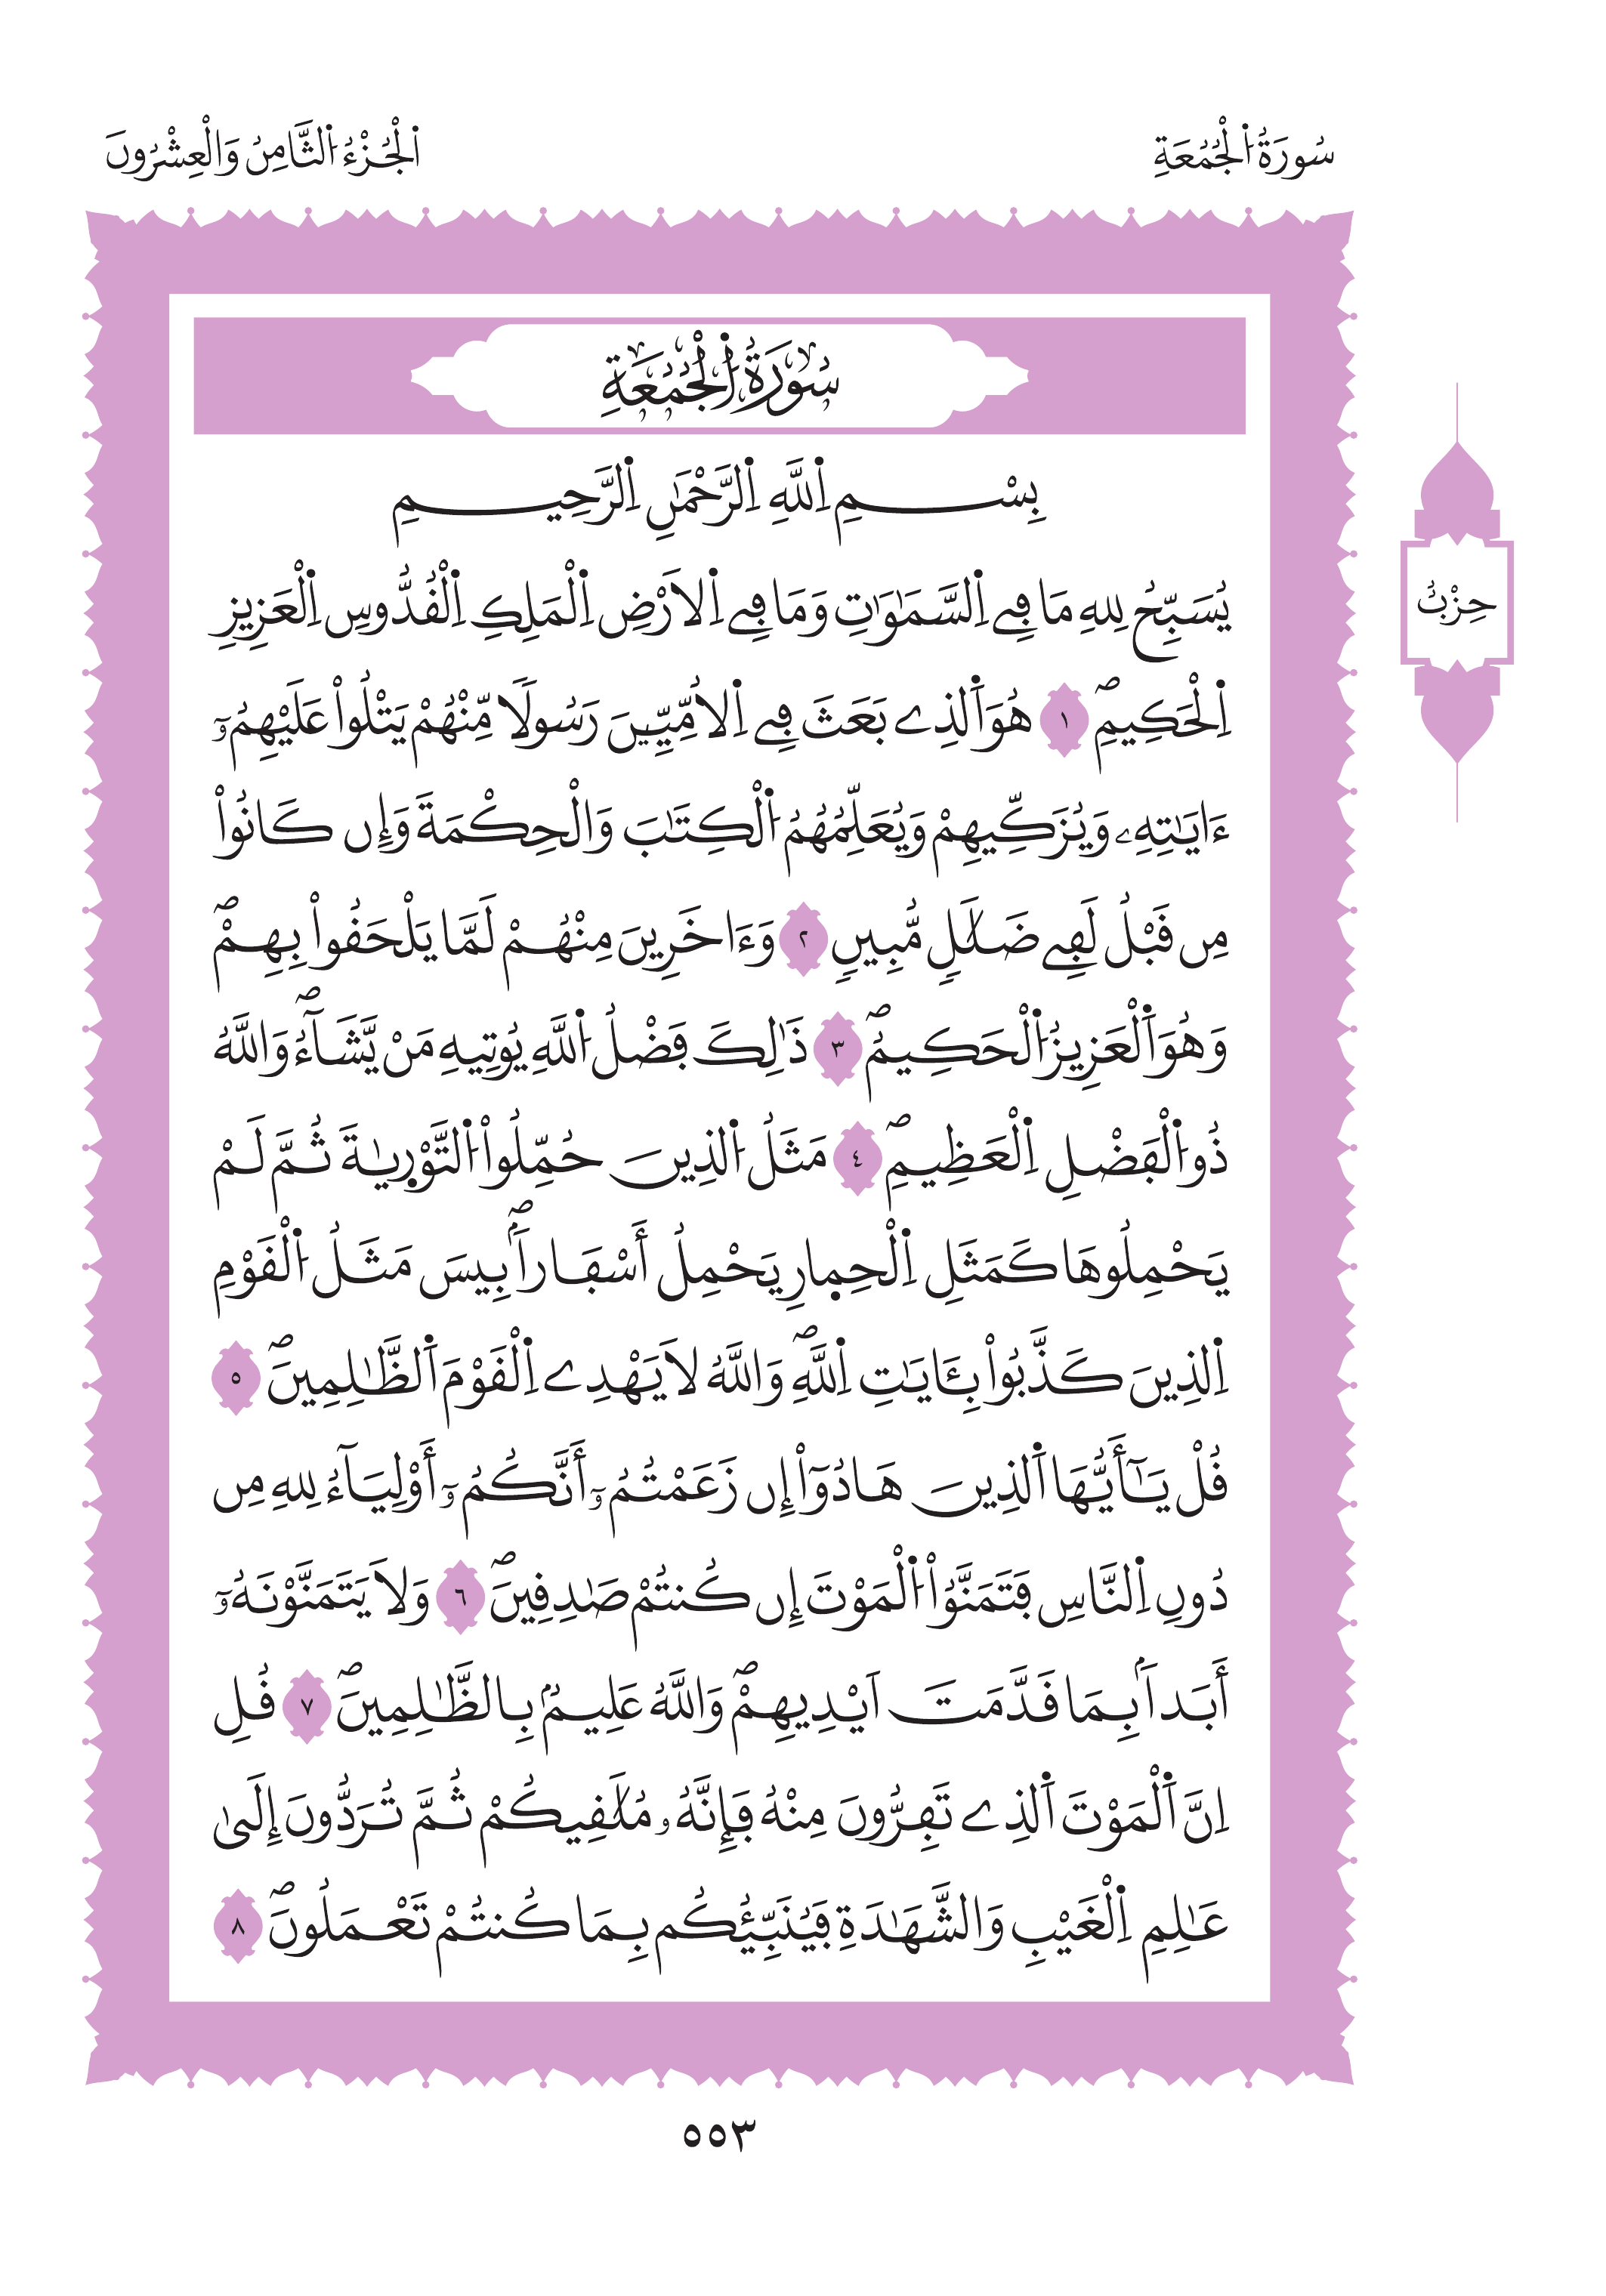 سُورَةُ اُ۬لْجُمُعَةِ
اَ۬لْجُزْءُ اُ۬لثَّامِنُ وَالْعِشْرُونَ
سُورَةُ اُ۬لْجُمُعَةِ
بِسْمِ اِ۬للَّهِ اِ۬لرَّحْمَٰنِ اِ۬لرَّحِيمِ
حِزْبٌ
يُسَبِّحُ لِلهِ مَا فِے اِ۬لسَّمَٰوَٰتِ وَمَا فِے اِ۬لَارْضِ اِ۬لْمَلِكِ اِ۬لْقُدُّوسِ اِ۬لْعَزِيزِ
اِ۬لْحَكِيمِۖ ١ هُوَ اَ۬لذِے بَعَثَ فِے اِ۬لُامِّيِّـۧنَ رَسُولاٗ مِّنْهُمْ يَتْلُواْ عَلَيْهِمُۥٓ
ءَايَٰتِهِۦ وَيُزَكِّيهِمْ وَيُعَلِّمُهُمُ اُ۬لْكِتَٰبَ وَالْحِكْمَةَ وَإِن كَانُواْ
مِن قَبْلُ لَفِے ضَلَٰلٖ مُّبِينٖ ٢ وَءَاخَرِينَ مِنْهُمْ لَمَّا يَلْحَقُواْ بِهِمْۖ
وَهُوَ اَ۬لْعَزِيزُ اُ۬لْحَكِيمُۖ ٣ ذَٰلِكَ فَضْلُ اُ۬للَّهِ يُوتِيهِ مَنْ يَّشَآءُۖ وَاللَّهُ
ذُو اُ۬لْفَضْلِ اِ۬لْعَظِيمِۖ ٤ مَثَلُ اُ۬لذِينَ حُمِّلُواْ اُ۬لتَّوْر۪يٰةَ ثُمَّ لَمْ
يَحْمِلُوهَا كَمَثَلِ اِ۬لْحِم۪ارِ يَحْمِلُ أَسْفَاراَۢۖ بِيسَ مَثَلُ اُ۬لْقَوْمِ
اِ۬لذِينَ كَذَّبُواْ بِـَٔايَٰتِ اِ۬للَّهِۖ وَاللَّهُ لَا يَهْدِے اِ۬لْقَوْمَ اَ۬لظَّٰلِمِينَۖ ٥
قُلْ يَٰٓأَيُّهَا اَ۬لذِينَ هَادُوٓاْ إِن زَعَمْتُمُۥٓ أَنَّكُمُۥٓ أَوْلِيَآءُ لِلهِ مِن
دُونِ اِ۬لنَّاسِ فَتَمَنَّوُاْ اُ۬لْمَوْتَ إِن كُنتُمْ صَٰدِقِينَۖ ٦ وَلَا يَتَمَنَّوْنَهُۥٓ
أَبَداَۢ بِمَا قَدَّمَتَ اَيْدِيهِمْۖ وَاللَّهُ عَلِيمُۢ بِالظَّٰلِمِينَۖ ٧ قُلِ
اِنَّ اَ۬لْمَوْتَ اَ۬لذِے تَفِرُّونَ مِنْهُ فَإِنَّهُۥ مُلَٰقِيكُمْ ثُمَّ تُرَدُّونَ إِلَىٰ
عَٰلِمِ اِ۬لْغَيْبِ وَالشَّهَٰدَةِ فَيُنَبِّئُكُم بِمَا كُنتُمْ تَعْمَلُونَۖ ٨
٥٥٣